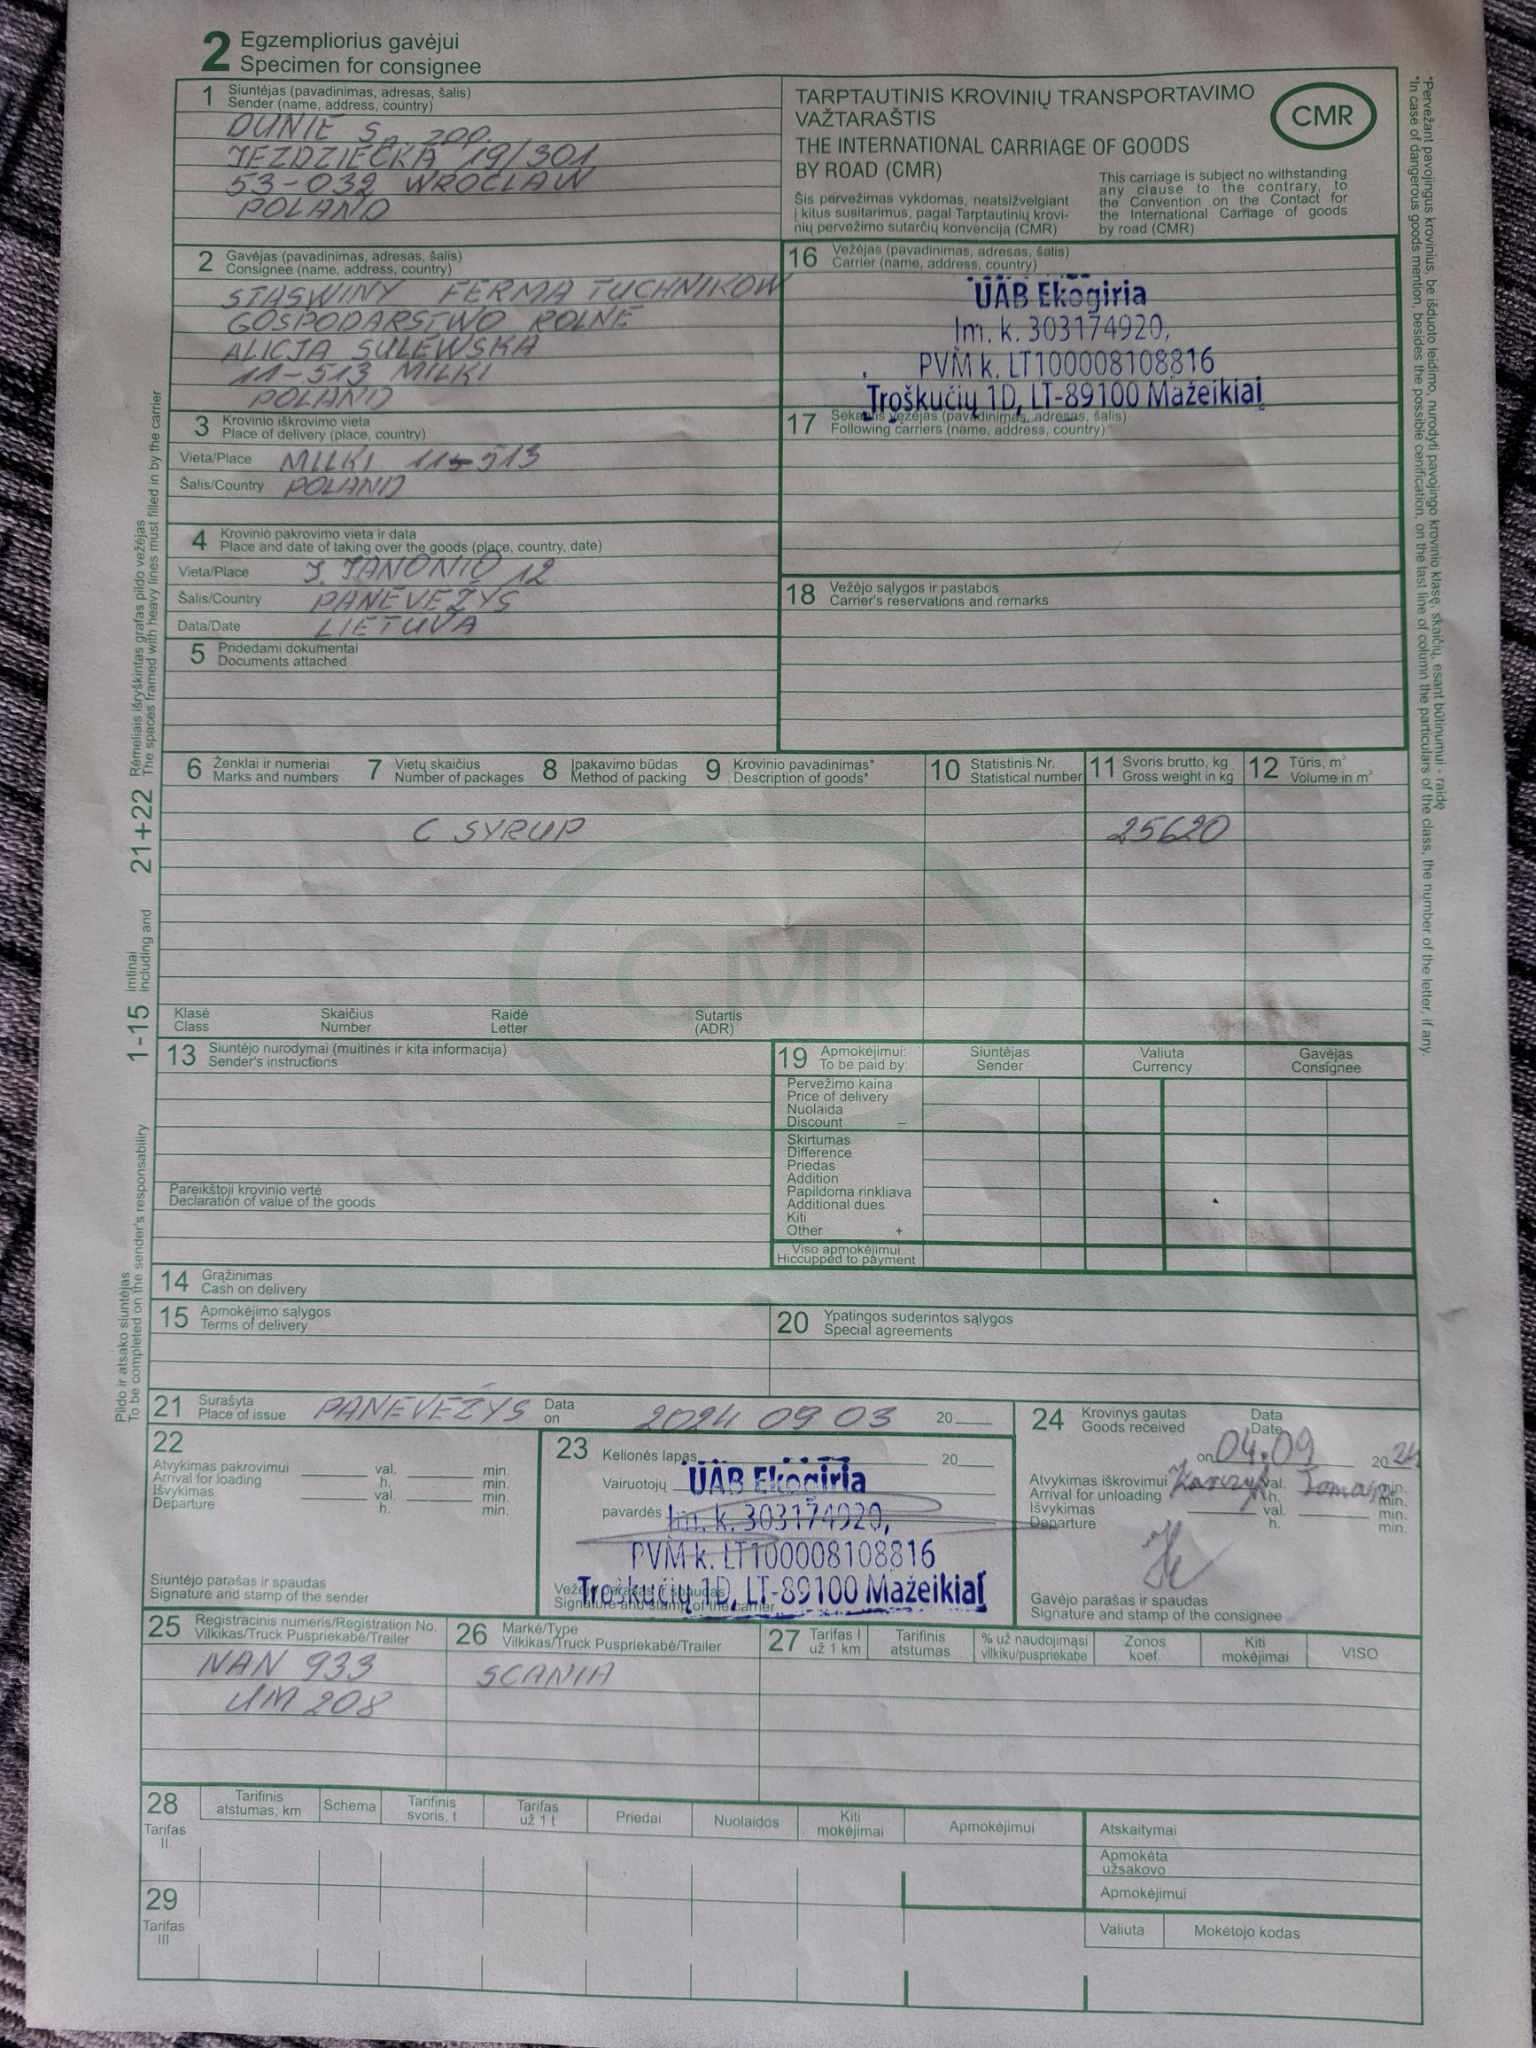 2 Egzempliorius gavėjui
Specimen for consignee
1 Siuntėjas (pavadinimas, adresas, šalis)
Sender (name, address, country)
DUNIE Sp. zoo.
JEZDZIECKA 19/301
53-032 WROCLAW
POLAND
TARPTAUTINIS KROVINIŲ TRANSPORTAVIMO
VAŽTARAŠTIS
THE INTERNATIONAL CARRIAGE OF GOODS
BY ROAD (CMR)
CMR
Šis pervežimas vykdomas, neatsižvelgiant
į kitus susitarimus, pagal Tarptautinių krovi-
nių pervežimo sutarčių konvenciją (CMR)
This carriage is subject no withstanding
any clause to the contrary, to
the Convention on the Contact for
the International Carriage of goods
by road (CMR)
2 Gavėjas (pavadinimas, adresas, šalis)
Consignee (name, address, country)
STASWINY FERMA TUCHNIKOW
GOSPODARSTWO ROLNE
ALICJA SULEWSKA
11-513 MILKI
POLAND
16 Vežėjas (pavadinimas, adresas, šalis)
Carrier (name, address, country)
UAB Ekogiria
Im. k. 303174920,
PVM k. LT100008108816
Troškučių 1D, LT-89100 Mažeikiai
3 Krovinio iškrovimo vieta
Place of delivery (place, country)
Vieta/Place MILKI 11-513
Šalis/Country POLAND
17 Sekantis vežėjas (pavadinimas, adresas, šalis)
Following carriers (name, address, country)
4 Krovinio pakrovimo vieta ir data
Place and date of taking over the goods (place, country, date)
Vieta/Place J. JANONIO 12
Šalis/Country PANEVĖŽYS
Data/Date LIETUVA
18 Vežėjo sąlygos ir pastabos
Carrier's reservations and remarks
5 Pridedami dokumentai
Documents attached
6 Ženklai ir numeriai
Marks and numbers
7 Vietų skaičius
Number of packages
8 Įpakavimo būdas
Method of packing
9 Krovinio pavadinimas*
Description of goods*
10 Statistinis Nr.
Statistical number
11 Svoris brutto, kg
Gross weight in kg
12 Tūris, m³
Volume in m³
C SYRUP 25620
CMR
Klasė
Class
Skaičius
Number
Raidė
Letter
Sutartis
(ADR)
13 Siuntėjo nurodymai (muitinės ir kita informacija)
Sender's instructions
Pareikštoji krovinio vertė
Declaration of value of the goods
19 Apmokėjimui:
To be paid by:
Siuntėjas
Sender
Valiuta
Currency
Gavėjas
Consignee
Pervežimo kaina
Price of delivery
Nuolaida
Discount –
Skirtumas
Difference
Priedas
Addition
Papildoma rinkliava
Additional dues
Kiti
Other +
Viso apmokėjimui
Hiccupped to payment
14 Grąžinimas
Cash on delivery
15 Apmokėjimo sąlygos
Terms of delivery
20 Ypatingos suderintos sąlygos
Special agreements
21 Surašyta
Place of issue PANEVĖŽYS
Data
on 2024 09 03 20
22
Atvykimas pakrovimui val. min.
Arrival for loading h. min.
Išvykimas val. min.
Departure h. min.
Siuntėjo parašas ir spaudas
Signature and stamp of the sender
23 Kelionės lapas 20
Vairuotojų
pavardės
UAB Ekogiria
Im. k. 303174920,
PVM k. LT100008108816
Troškučių 1D, LT-89100 Mažeikiai
Vežėjo parašas ir spaudas
Signature and stamp of the carrier
24 Krovinys gautas
Goods received
Data
Date
on 04.09 2024
Atvykimas iškrovimui val. min.
Arrival for unloading h. min.
Išvykimas val. min.
Departure h. min.
Gavėjo parašas ir spaudas
Signature and stamp of the consignee
25 Registracinis numeris/Registration No.
Vilkikas/Truck Puspriekabė/Trailer
NAN 933
UM 208
26 Markė/Type
Vilkikas/Truck Puspriekabė/Trailer
SCANIA
27 Tarifas I
už 1 km
Tarifinis
atstumas
% už naudojimąsi
vilkiku/puspriekabe
Zonos
koef.
Kiti
mokėjimai
VISO
28
Tarifas
II
Tarifinis
atstumas, km
Schema
Tarifinis
svoris, t
Tarifas
už 1 t
Priedai
Nuolaidos
Kiti
mokėjimai
Apmokėjimui
Atskaitymai
Apmokėta
užsakovo
Apmokėjimui
29
Tarifas
III
Valiuta
Mokėtojo kodas
1-15 imtinai
including and
21+22
Rėmeliais išryškintas grafas pildo vežėjas
The spaces framed with heavy lines must filled in by the carrier
Pildo ir atsako siuntėjas
To be completed on the sender's responsibility
*Pervežant pavojingus krovinius, be išduoto leidimo, nurodyti pavojingo krovinio klasę, skaičių, esant būtinumui - raidę
*In case of dangerous goods mention, besides the possible cenification, on the last line of column the particulars of the class, the number of the letter, if any.